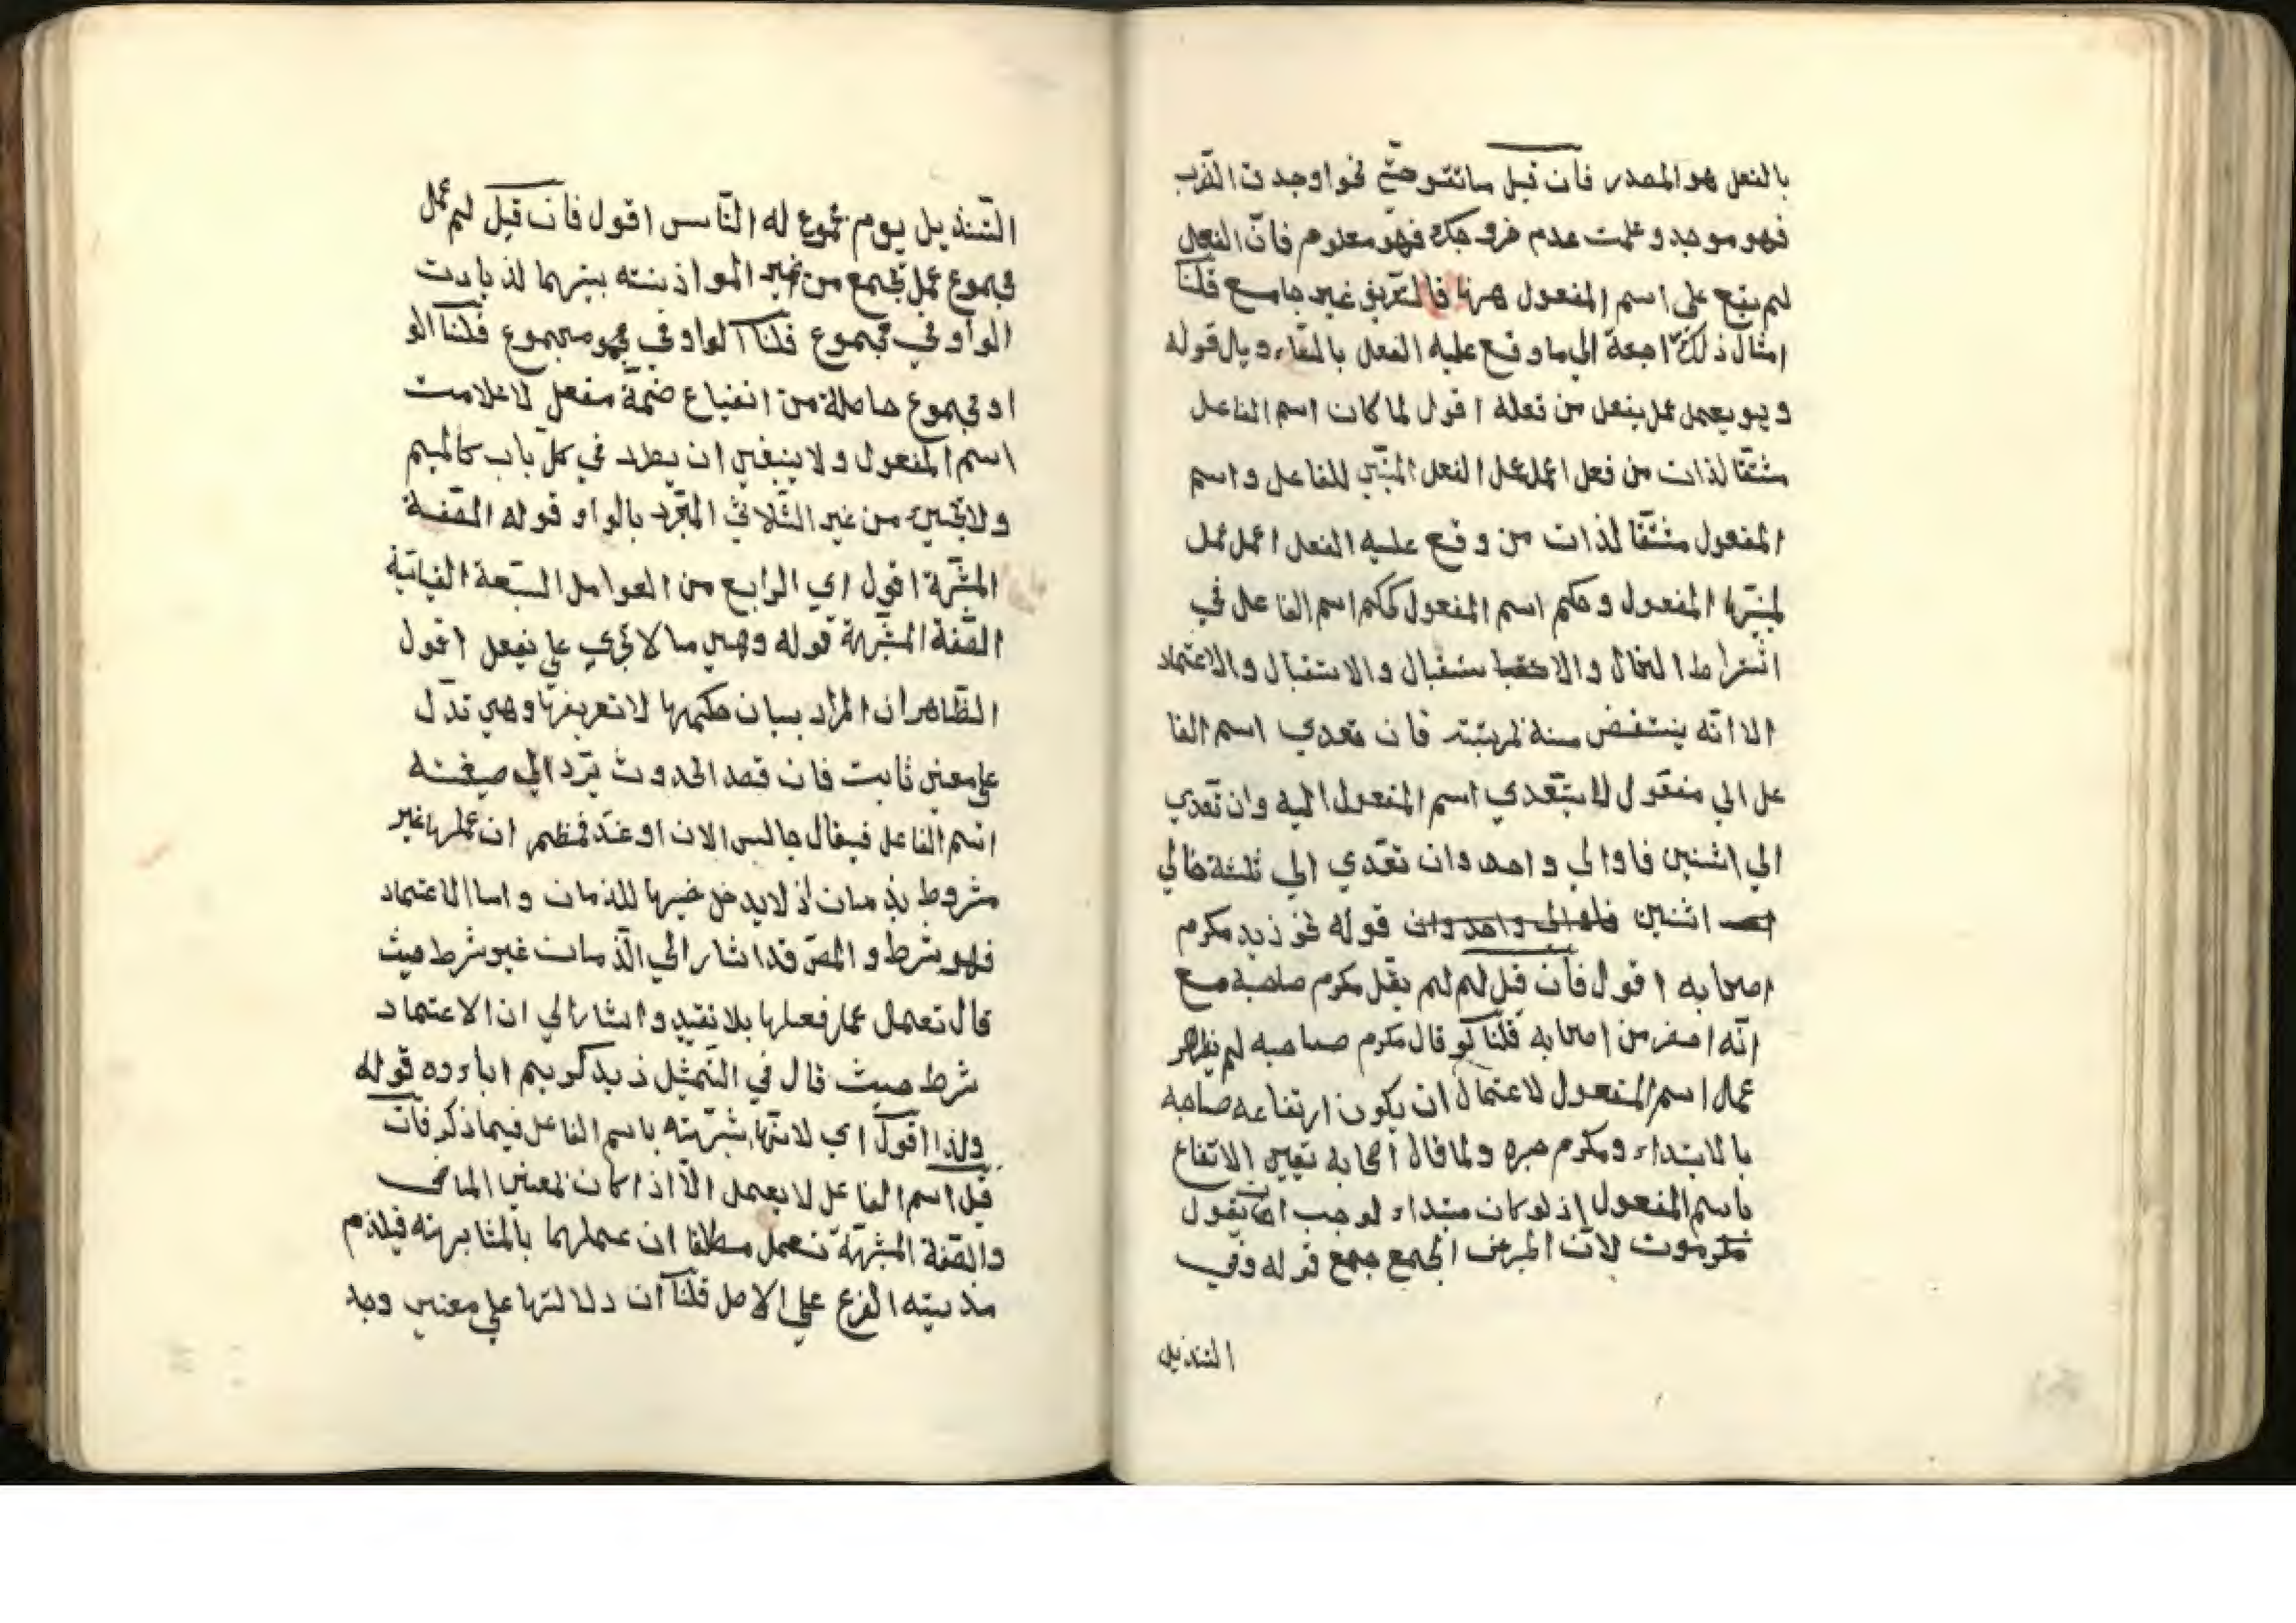 بالفعل هو المصدر فان قيل ما تقول في نحو اوجدت الضرب
فهو موجد وعلمت عدم خروجك فهو معلوم فانّ الفعل
لم يقع على اسم المفعول ههنا فالتعريف غير جامع قلنا
امثال ذلك راجعة الي ما وقع عليه الفعل بالتأويل قوله
وهو يعمل عمل يفعل من فعله اقول لما كان اسم الفاعل
مشتقا لذات من فعل اعمل عمل الفعل المبني للفاعل واسم
المفعول مشتقا لذات من وقع عليه الفعل اعمل عمل
المفعول وحكم اسم المفعول كحكم اسم الفاعل في
اشتراط الحال والاستقبال والاعتماد
الا انّه ينتقص منه مرتبته فان تعدي اسم الفا
عل الي مفعول لا يتعدي اسم المفعول اليه وان تعدي
الي اثنين فاوالي واحد وان تعدي الي ثلثة فالي
اثنين قوله نحو زيد مكرم
اصحابه اقول فان قيل لم لم يقل مكرم صاحبه مع
انّه اصغر من اصحابه قلنا لو قال مكرم صاحبه لم يظهر
عمل اسم المفعول لاحتمال ان يكون ارتفاعه صاحبه
بالابتداء ومكرم خبره ولما قال اصحابه تعين الاتفاع
باسم المفعول اذ لو كان مبتداء لوجب ان يقول
مكرمون لانّ الجمع جمع قوله وفي
التنذيل
التّنذيل يوم مجموع له النّاس اقول فان قيل لم عمل
مجموع عمل يجمع من غير الموازنته بينهما لزيادت
الواو في مجموع قلنا الواو في مجموع قلنا الو
او مجموع حاصلة من اشباع ضمّة مفعل لا علامت
اسم المفعول ولا ينبغي ان يطرد في كلّ باب كالميم
ولا يجيئ من غير الثلاثي المجرّد بالواو قوله الصّفة
المشبّهة اقول اي الرابع من العوامل السبعة القياسيّة
الصّفة المشبّهة قوله وهي ما لا يجري علي يفعل اقول
الظّاهر ان المراد بيان حكمها لا تعريفها وهي تدلّ
علي معني ثابت فان قصد الحدوث تردّ الي صيغته
اسم الفاعل فيقال جالس الان او غدا فظهر ان عملها غير
مشروط بزمان اذ لا يدخل فيها للزمان واما الاعتماد
فهو شرط و المص قد اشار الي الزّمان غير شرط حيث
قال تعمل عمل فعلها بلا تقييد واشار الي ان الاعتماد
شرط حيث قال في التّمثيل زيد كريم اباءوه قوله
ولذا اقول اي لانّها شبّهته باسم الفاعل فيما ذكر فان
قيل اسم الفاعل لا يعمل الاّ اذا كان لمعني الماضي
والصّفة المشبّهة تعمل مطلقا ان عملهما بالمشابهته فيلزم
مذيته الفرع علي الاصل قلنا انّ دلالتها علي معني وجد